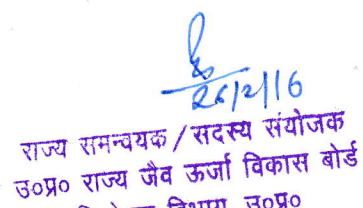 26/2/16
राज्य समन्वयक / सदस्य संयोजक
उ०प्र० राज्य जैव ऊर्जा विकास बोर्ड
विभाग, उ०प्र०